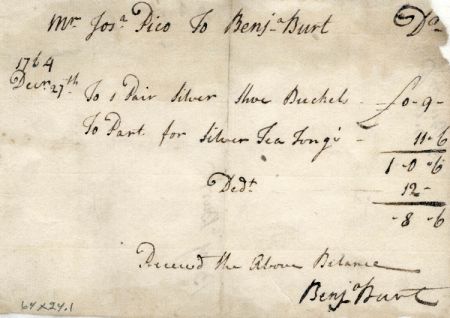 Mr Josa Pico To Benja Burt Dr
1764
Decr 27th To 1 Pair Silver Shoe Buckels - £0-9-
To Part for Silver Tea Tongs - 11-6
1-0-6
Dedt 12-
-8-6
Receivd the Above Balance
Benja Burt
64x24.1